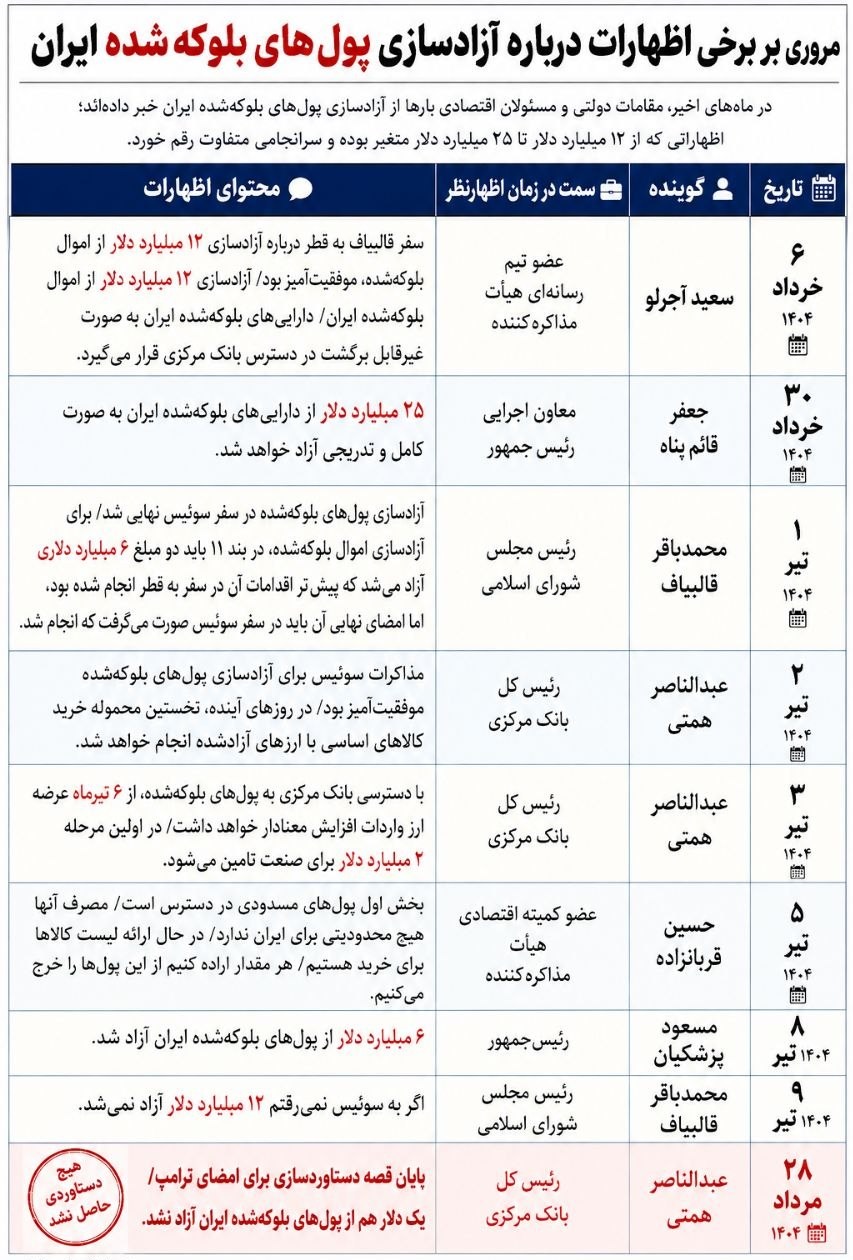 مروری بر برخی اظهارات درباره آزادسازی پول‌های بلوکه شده ایران
در ماه‌های اخیر، مقامات دولتی و مسئولان اقتصادی بارها از آزادسازی پول‌های بلوکه‌شده ایران خبر داده‌اند؛
اظهاراتی که از ۱۲ میلیارد دلار تا ۲۵ میلیارد دلار متغیر بوده و سرانجامی متفاوت رقم خورد.
تاریخ
گوینده
سمت در زمان اظهارنظر
محتوای اظهارات
۶
خرداد
۱۴۰۴
سعید آجرلو
عضو تیم
رسانه‌ای هیأت
مذاکره‌کننده
سفر قالیباف به قطر درباره آزادسازی ۱۲ میلیارد دلار از اموال
بلوکه‌شده، موفقیت‌آمیز بود/ آزادسازی ۱۲ میلیارد دلار از اموال
بلوکه‌شده ایران/ دارایی‌های بلوکه‌شده ایران به صورت
غیرقابل برگشت در دسترس بانک مرکزی قرار می‌گیرد.
۳۰
خرداد
۱۴۰۴
جعفر
قائم پناه
معاون اجرایی
رئیس جمهور
۲۵ میلیارد دلار از دارایی‌های بلوکه‌شده ایران به صورت
کامل و تدریجی آزاد خواهد شد.
۱
تیر
۱۴۰۴
محمدباقر
قالیباف
رئیس مجلس
شورای اسلامی
آزادسازی پول‌های بلوکه‌شده در سفر سوئیس نهایی شد/ برای
آزادسازی اموال بلوکه‌شده، در بند ۱۱ باید دو مبلغ ۶ میلیارد دلاری
آزاد می‌شد که پیش‌تر اقدامات آن در سفر به قطر انجام شده بود،
اما امضای نهایی آن باید در سفر سوئیس صورت می‌گرفت که انجام شد.
۲
تیر
۱۴۰۴
عبدالناصر
همتی
رئیس کل
بانک مرکزی
مذاکرات سوئیس برای آزادسازی پول‌های بلوکه‌شده
موفقیت‌آمیز بود/ در روزهای آینده، نخستین محموله خرید
کالاهای اساسی با ارزهای آزادشده انجام خواهد شد.
۳
تیر
۱۴۰۴
عبدالناصر
همتی
رئیس کل
بانک مرکزی
با دسترسی بانک مرکزی به پول‌های بلوکه‌شده، از ۶ تیرماه عرضه
ارز واردات افزایش معنادار خواهد داشت/ در اولین مرحله
۲ میلیارد دلار برای صنعت تامین می‌شود.
۵
تیر
۱۴۰۴
حسین
قربانزاده
عضو کمیته اقتصادی
هیأت
مذاکره‌کننده
بخش اول پول‌های مسدودی در دسترس است/ مصرف آنها
هیچ محدودیتی برای ایران ندارد/ در حال ارائه لیست کالاها
برای خرید هستیم/ هر مقدار اراده کنیم از این پول‌ها را خرج
می‌کنیم.
۸
تیر ۱۴۰۴
مسعود
پزشکیان
رئیس‌جمهور
۶ میلیارد دلار از پول‌های بلوکه‌شده ایران آزاد شد.
۹
تیر ۱۴۰۴
محمدباقر
قالیباف
رئیس مجلس
شورای اسلامی
اگر به سوئیس نمی‌رفتم ۱۲ میلیارد دلار آزاد نمی‌شد.
۲۸
مرداد
۱۴۰۴
عبدالناصر
همتی
رئیس کل
بانک مرکزی
پایان قصه دستاوردسازی برای امضای ترامپ/
یک دلار هم از پول‌های بلوکه‌شده ایران آزاد نشد.
هیچ
دستاوردی
حاصل نشد